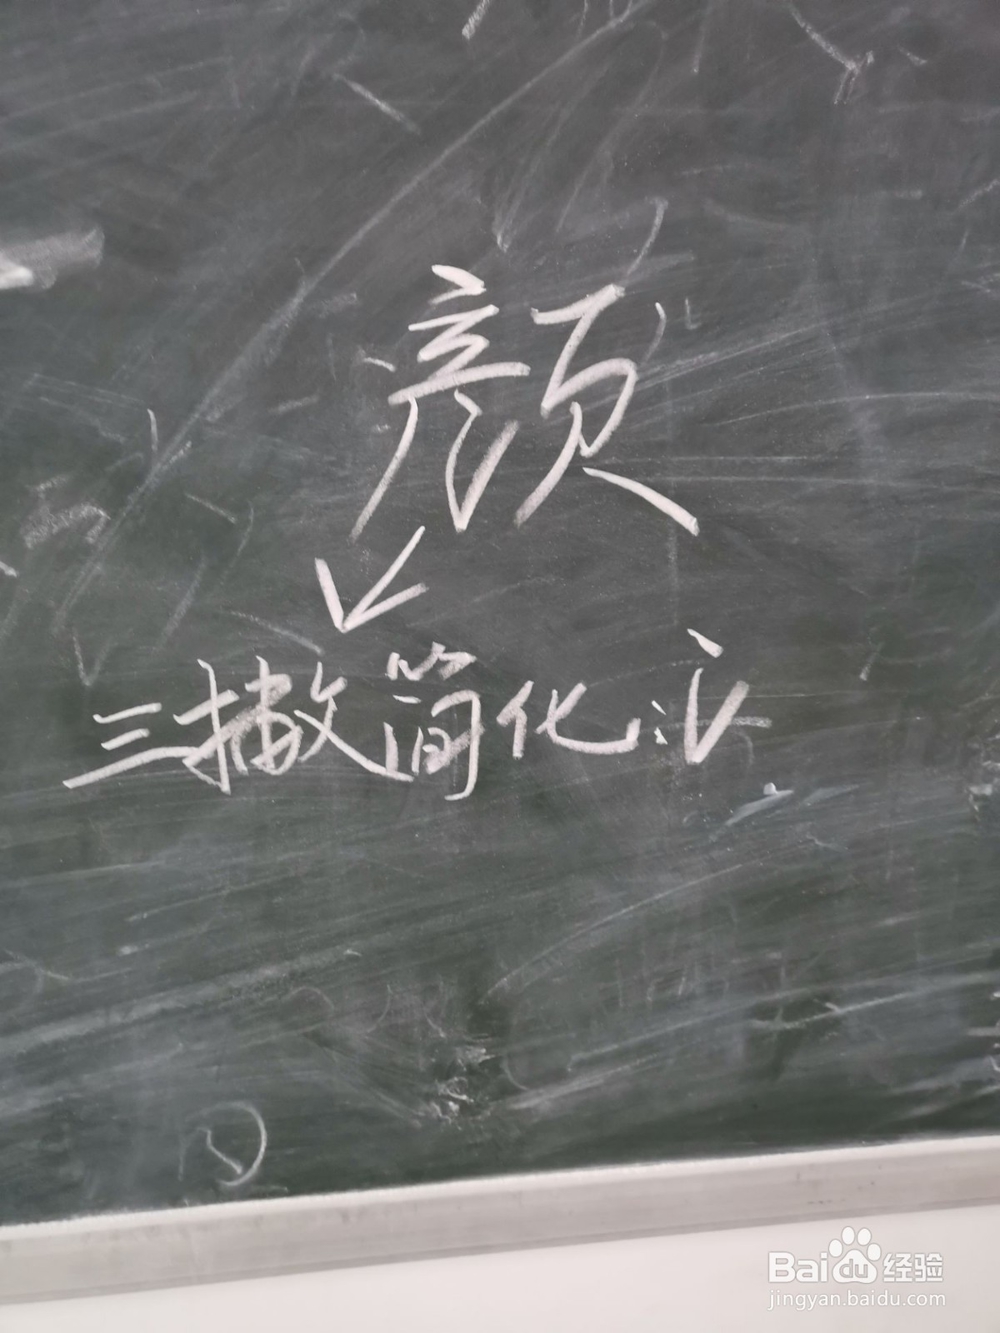 颜
三撇简化法
Baidu 经验
jingyan.baidu.com